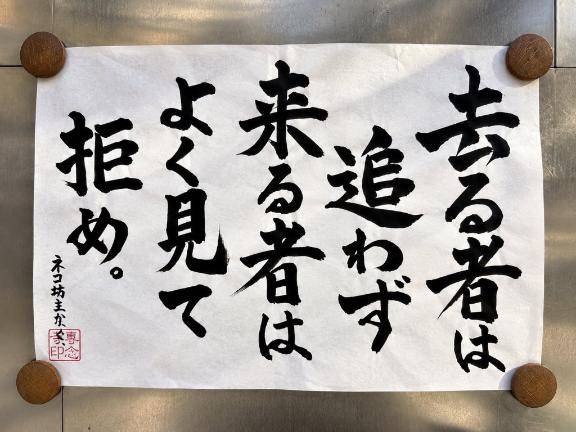 去る者は
追わず
来る者は
よく見て
拒め。
ネコ坊主か